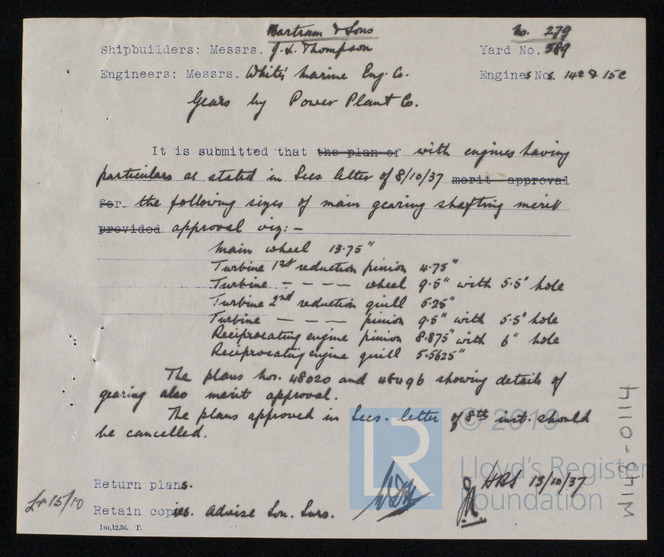 Bartram & Sons No. 279
Shipbuilders: Messrs. J.L. Thompson Yard No. 589
Engineers: Messrs. White's Marine Eng. Co. Engines Nos. 14e & 15e
Gears by Power Plant Co.
It is submitted that the plan of with engines having
particulars as stated in Secs letter of 8/10/37 merit approval
for the following sizes of main gearing shafting merit
provided approval viz:-
Main wheel 13.75"
Turbine 1st reduction pinion 4.75"
Turbine - - - - wheel 9.5" with 5.5" hole
Turbine 2nd reduction quill 5.25"
Turbine - - - pinion 9.5" with 5.5" hole
Reciprocating engine pinion 8.875" with 6" hole
Reciprocating engine quill 5.5625"
The plans nos. 48020 and 48496 showing details of
gearing also merit approval.
The plans approved in Secs. letter of 8th inst. should
be cancelled.
Return plans.
HRS 13/10/37
Lr 15/10
Retain copies. Advise Lon. Surs.
1m,12,36. T.
W114-0114
LR
© 2019
Lloyd's Register
Foundation